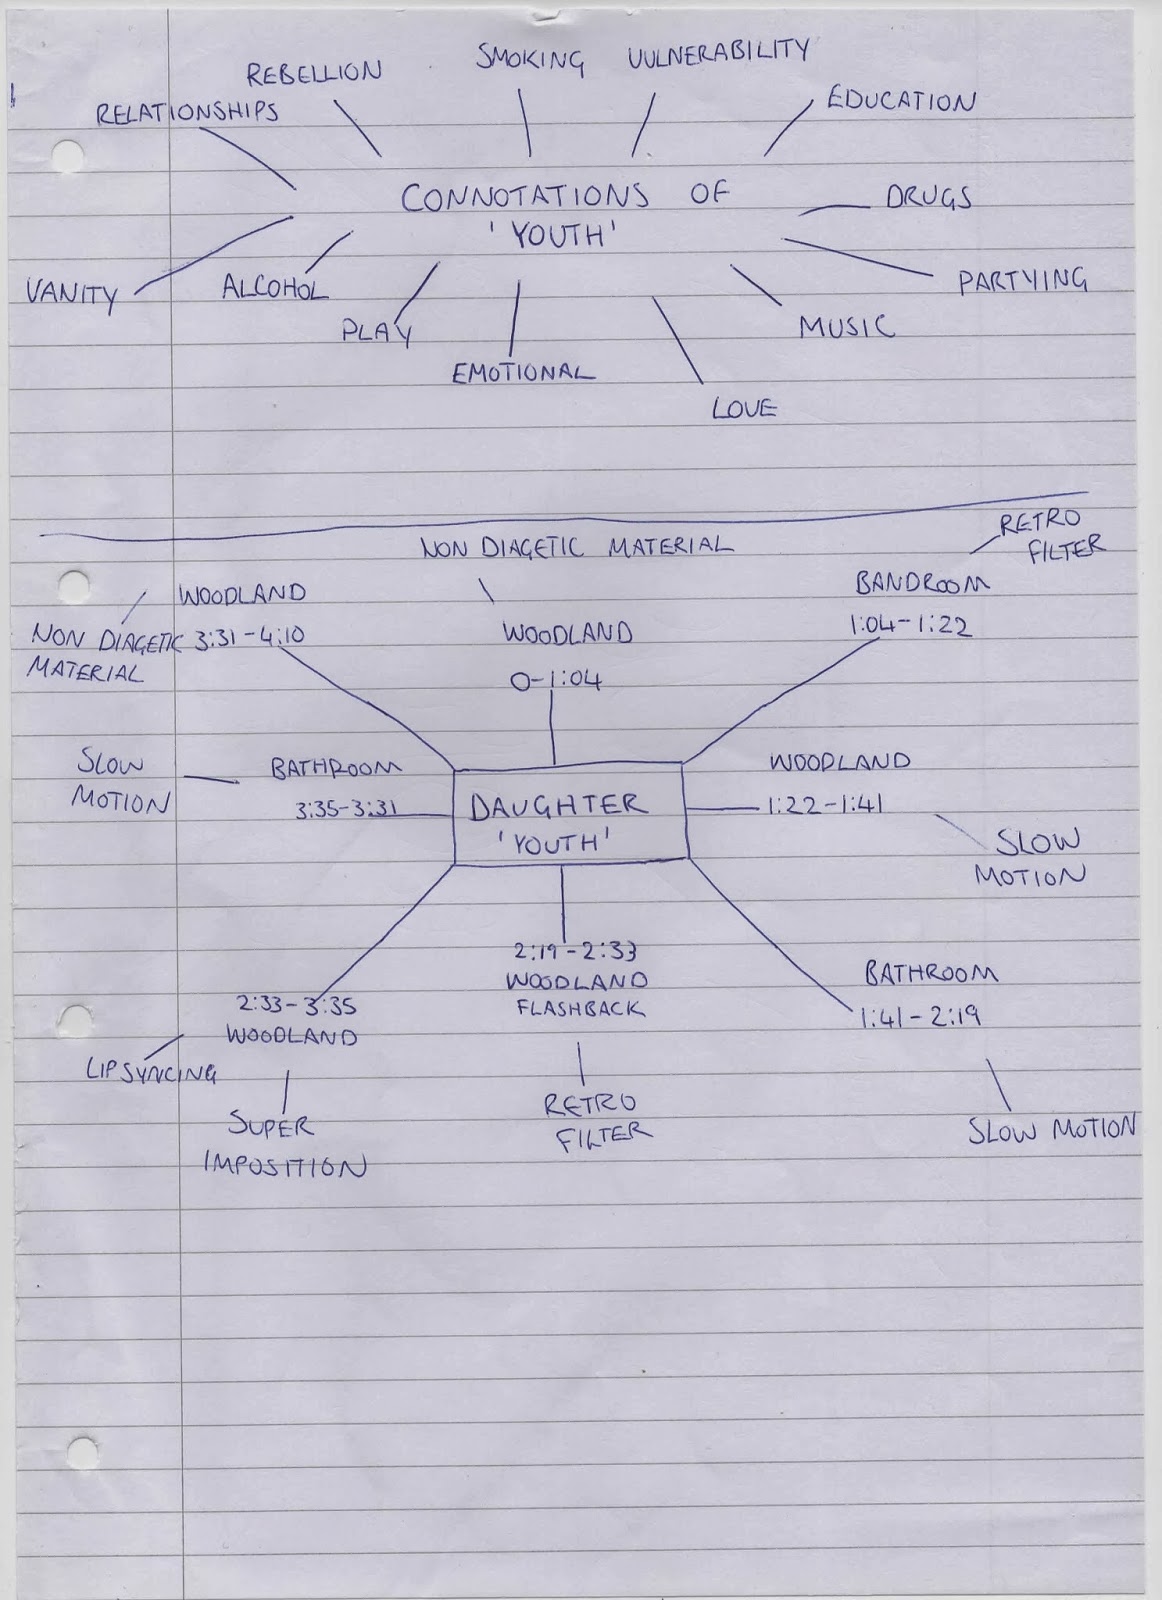 SMOKING VULNERABILITY
REBELLION
EDUCATION
RELATIONSHIPS
CONNOTATIONS OF
'YOUTH'
DRUGS
VANITY
ALCOHOL
PARTYING
PLAY
MUSIC
EMOTIONAL
LOVE
RETRO
FILTER
NON DIAGETIC MATERIAL
WOODLAND
0-1:04
BANDROOM
1:04-1:22
WOODLAND
3:31-4:10
NON DIAGETIC
MATERIAL
SLOW
MOTION
BATHROOM
3:35-3:31
DAUGHTER
'YOUTH'
WOODLAND
1:22-1:41
SLOW
MOTION
2:19-2:33
WOODLAND
FLASHBACK
BATHROOM
1:41-2:19
2:33-3:35
WOODLAND
LIPSYNCING
SUPER
IMPOSITION
RETRO
FILTER
SLOW MOTION